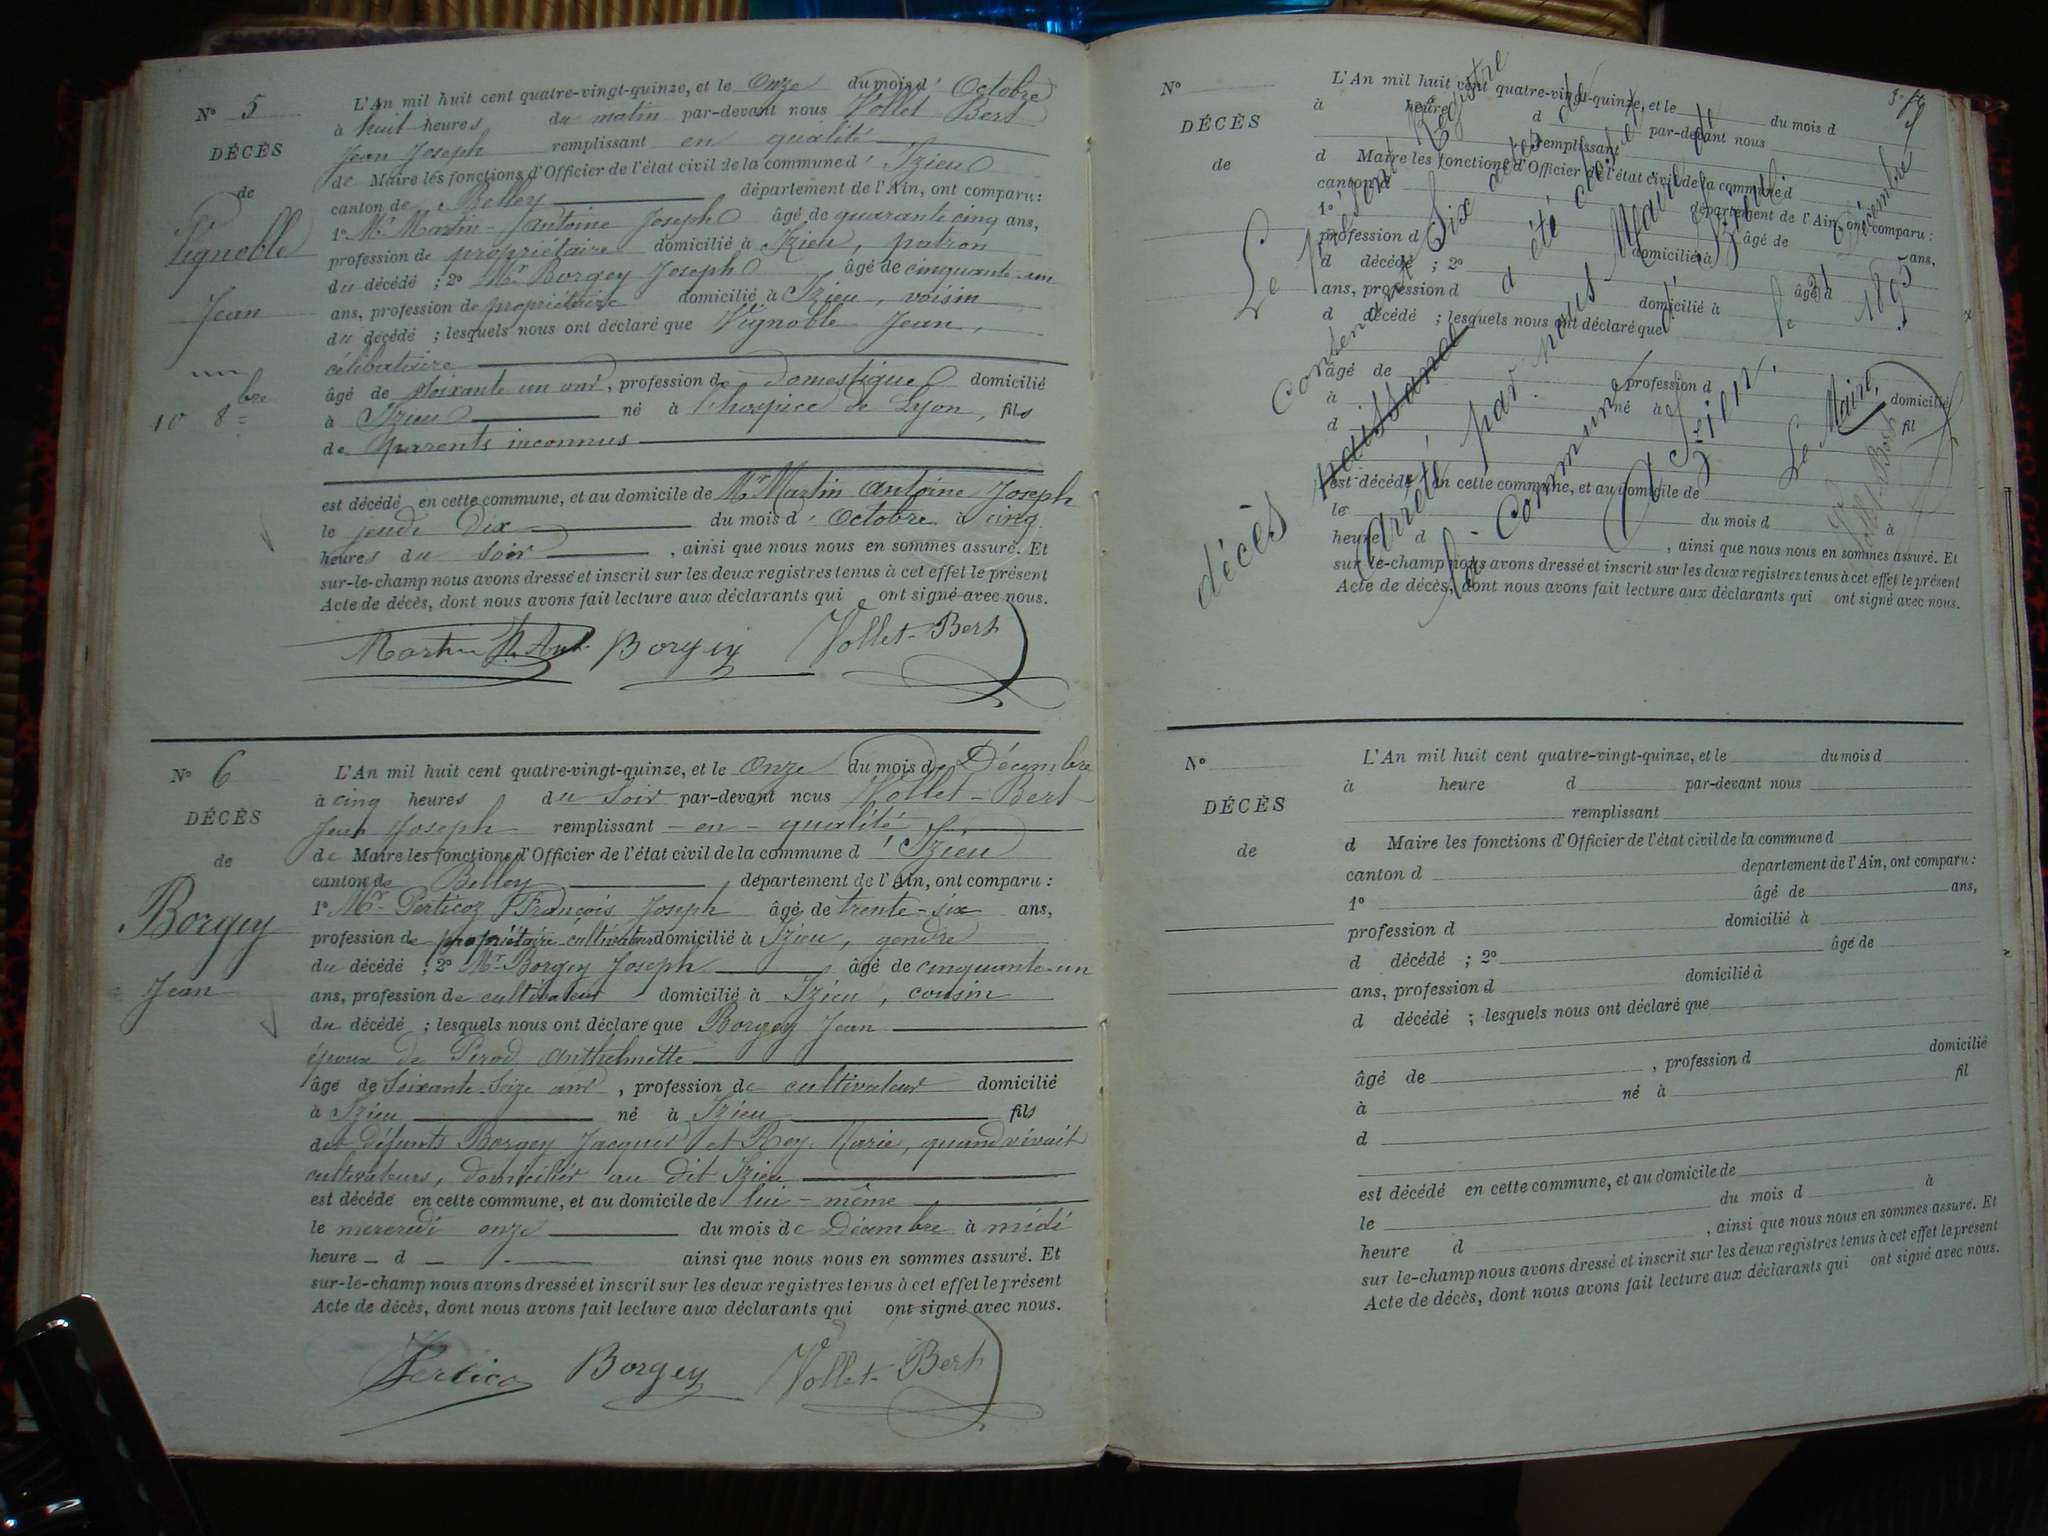 N° 5
DÉCÈS
de
Vignoble
Jean
10 8bre
L'An mil huit cent quatre-vingt-quinze, et le Onze du mois d' Octobre
à huit heures du matin par-devant nous Vollet Bert
Jean Joseph remplissant en qualité
de Maire les fonctions d'Officier de l'état civil de la commune d' Izieu
canton de Belley département de l'Ain, ont comparu :
1° Mr Martin Antoine Joseph âgé de quarante cinq ans,
profession de propriétaire domicilié à Izieu, patron
du décédé ; 2° Mr Borgey Joseph âgé de cinquante-un
ans, profession de propriétaire domicilié à Izieu, voisin
du décédé ; lesquels nous ont déclaré que Vignoble Jean,
célibataire
âgé de soixante un ans, profession de domestique domicilié
à Izieu né à l'hospice de Lyon, fils
de parents inconnus
est décédé en cette commune, et au domicile de Mr Martin Antoine Joseph
le jeudi dix du mois d' Octobre à cinq
heures du soir, ainsi que nous nous en sommes assuré. Et
sur-le-champ nous avons dressé et inscrit sur les deux registres tenus à cet effet le présent
Acte de décès, dont nous avons fait lecture aux déclarants qui ont signé avec nous.
Borgey Vollet-Bert
N° 6
DÉCÈS
de
Borgey
Jean
L'An mil huit cent quatre-vingt-quinze, et le Onze du mois de Décembre
à cinq heures du soir par-devant nous Vollet-Bert
Jean Joseph remplissant - en - qualité
de Maire les fonctions d'Officier de l'état civil de la commune d' Izieu
canton de Belley, département de l'Ain, ont comparu :
1° Mr Perticoz François Joseph âgé de trente-six ans,
profession de propriétaire-cultivateur domicilié à Izieu, gendre
du décédé ; 2° Mr Borgey Joseph âgé de cinquante-un
ans, profession de cultivateur domicilié à Izieu, cousin
du décédé ; lesquels nous ont déclaré que Borgey Jean
époux de Perod Anthelmette
âgé de soixante-seize ans, profession de cultivateur domicilié
à Izieu né à Izieu fils
des défunts Borgey Jacques et Rey Marie, quand vivait
cultivateurs, domiciliés au dit Izieu
est décédé en cette commune, et au domicile de lui-même
le mercredi onze du mois de Décembre à midi
heure - d - ainsi que nous nous en sommes assuré. Et
sur-le-champ nous avons dressé et inscrit sur les deux registres tenus à cet effet le présent
Acte de décès, dont nous avons fait lecture aux déclarants qui ont signé avec nous.
Borgey Vollet-Bert
N°
DÉCÈS
de
L'An mil huit cent quatre-vingt-quinze, et le du mois d
à heure d par-devant nous
remplissant
d Maire les fonctions d'Officier de l'état civil de la commune d
canton d département de l'Ain, ont comparu :
1° âgé de ans,
profession d domicilié à
d décédé ; 2° âgé d
ans, profession d domicilié à
d décédé ; lesquels nous ont déclaré que
âgé de profession d domicilié
à né à fil
d
est décédé en cette commune, et au domicile de
le du mois d à
heure d , ainsi que nous nous en sommes assuré. Et
sur-le-champ nous avons dressé et inscrit sur les deux registres tenus à cet effet le présent
Acte de décès, dont nous avons fait lecture aux déclarants qui ont signé avec nous.
Le présent Registre
contenant Six actes de
décès naissance a été clos et
Arrêté par nous Maire de
la Commune d'Izieu.
A Izieu, le 31 Décembre
1895
Le Maire,
Vollet-Bert
N°
DÉCÈS
de
L'An mil huit cent quatre-vingt-quinze, et le du mois d
à heure d par-devant nous
remplissant
d Maire les fonctions d'Officier de l'état civil de la commune d
canton d département de l'Ain, ont comparu :
1° âgé de ans,
profession d domicilié à
d décédé ; 2° âgé de
ans, profession d domicilié à
d décédé ; lesquels nous ont déclaré que
âgé de , profession d domicilié
à né à fil
d
est décédé en cette commune, et au domicile de
le du mois d à
heure d , ainsi que nous nous en sommes assuré. Et
sur le-champ nous avons dressé et inscrit sur les deux registres tenus à cet effet le présent
Acte de décès, dont nous avons fait lecture aux déclarants qui ont signé avec nous.